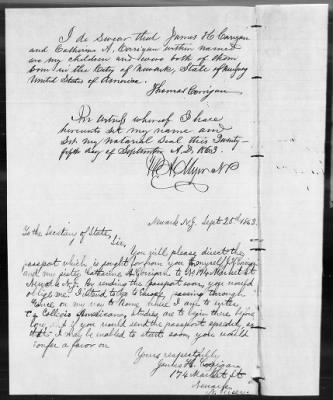 I do swear that James H Corrigan
and Catharine A. Corrigan within named
are my children and were both of them
born in the City of Newark, State of New Jersey
United States of America.
Thomas Corrigan
In witness whereof I have
hereunto set my name and
set my notarial seal this Twenty-
fifth day of September A.D. 1863.
Newark N.J. Sept 25th 1863.
To the Secretary of State,
Sir,
You will please direct the
passport which is sought for from you for myself J H Corrigan
and my sister Catharine A Corrigan to No 174 Market St
Newark N.J. By sending the passport soon, you would
oblige me. I intend to go to Europe, passing through
France on my way to Rome while I am to enter
the Collegio Americano, studies are to begin there before
long, and if you would send the passport speedily, so
that I may be enabled to start soon, you would
confer a favor on
Yours respectfully
James H. Corrigan
174 Market St
Newark
N. Jersey